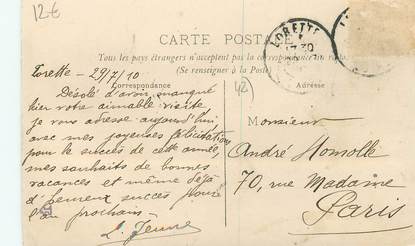 12€
CARTE POSTALE
Tous les pays étrangers n'acceptent pas la correspondance au
(Se renseigner à la Poste)
Correspondance
Adresse
LORETTE
Lorette - 29/7/10
Désolé d'avoir manqué
hier votre aimable visite,
je vous adresse aujourd'hui
avec mes joyeuses félicitations
pour le succès de cette année,
mes souhaits de bonnes
vacances et même déjà
d'heureux succès pour
l'an prochain.
42
Monsieur
André Homolle
70, rue Madame
Paris